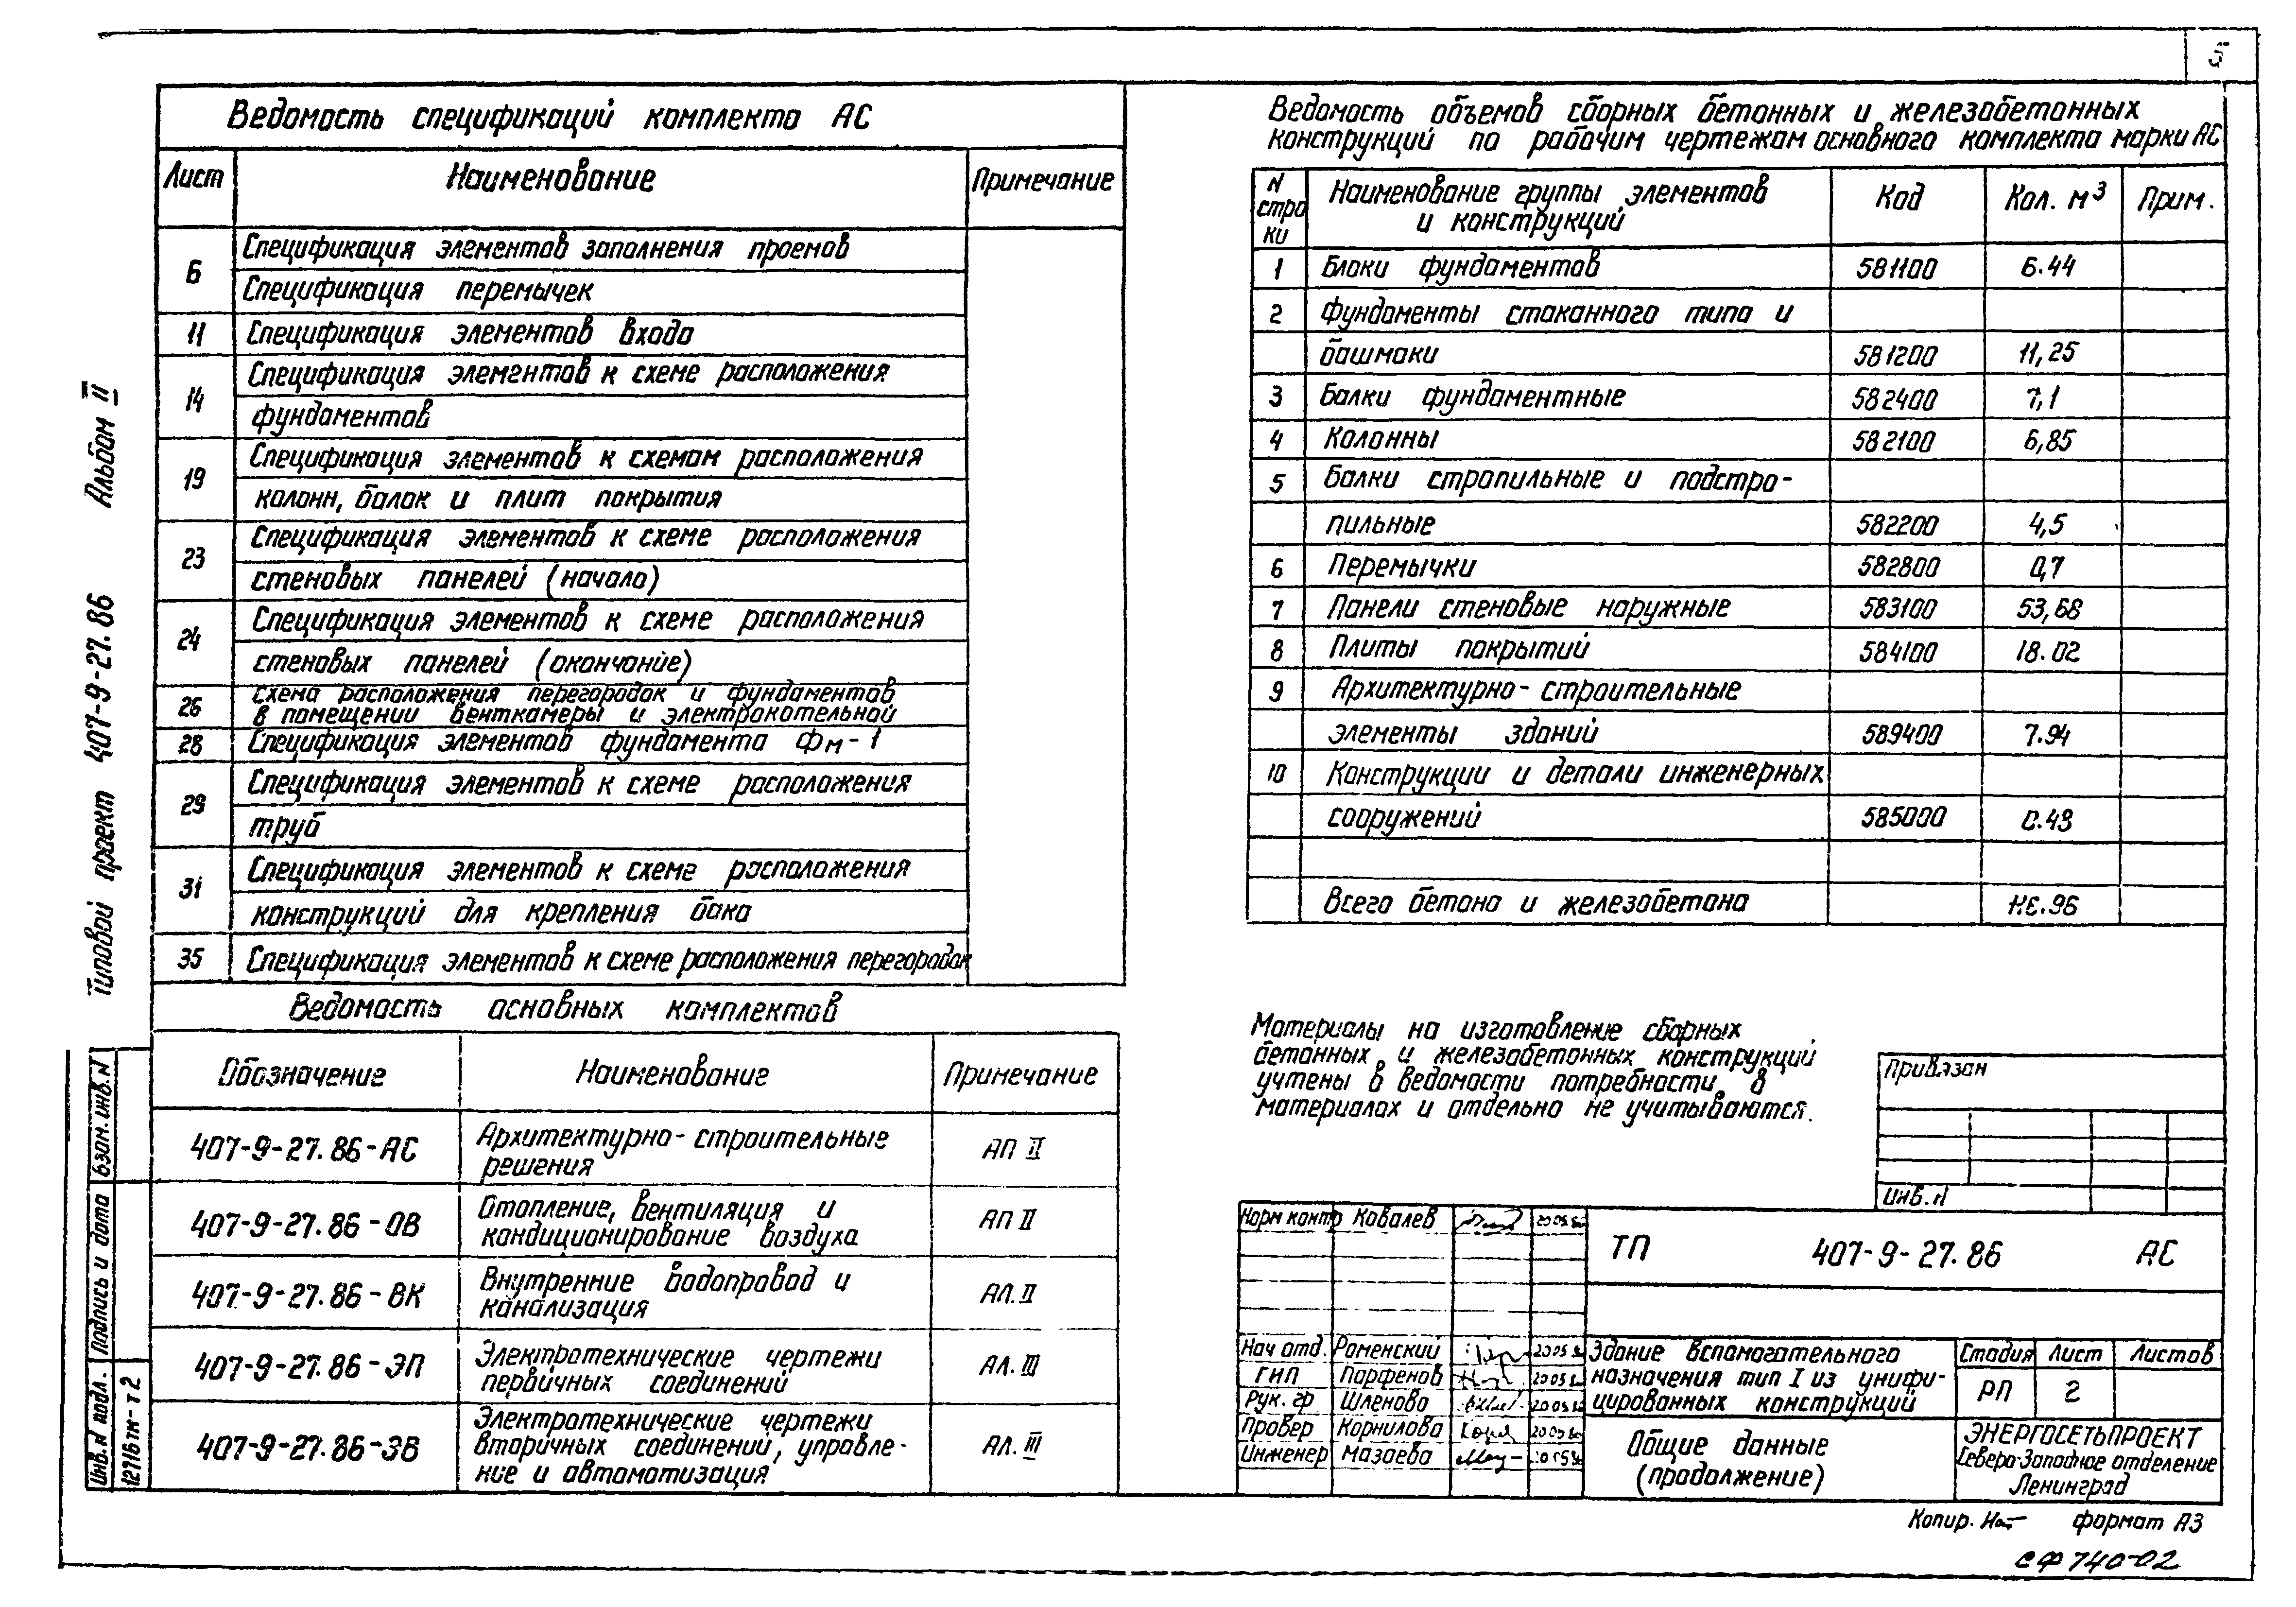 5
Ведомость спецификаций комплекта АС
Лист Наименование Примечание
6 Спецификация элементов заполнения проемов
Спецификация перемычек
11 Спецификация элементов входа
14 Спецификация элементов к схеме расположения
фундаментов
19 Спецификация элементов к схемам расположения
колонн, балок и плит покрытия
23 Спецификация элементов к схеме расположения
стеновых панелей (начало)
24 Спецификация элементов к схеме расположения
стеновых панелей (окончание)
26 схема расположения перегородок и фундаментов
в помещении венткамеры и электрокотельной
28 Спецификация элементов фундамента Фм-1
29 Спецификация элементов к схеме расположения
труб
31 Спецификация элементов к схеме расположения
конструкций для крепления бака
35 Спецификация элементов к схеме расположения перегородок
Ведомость основных комплектов
Обозначение Наименование Примечание
407-9-27.86-АС Архитектурно-строительные
решения АЛ II
407-9-27.86-ОВ Отопление, вентиляция и
кондиционирование воздуха АЛ II
407-9-27.86-ВК Внутренние водопровод и
канализация АЛ. II
407-9-27.86-ЭП Электротехнические чертежи
первичных соединений АЛ. III
407-9-27.86-ЭВ Электротехнические чертежи
вторичных соединений, управле-
ние и автоматизация АЛ. III
Ведомость объемов сборных бетонных и железобетонных
конструкций по рабочим чертежам основного комплекта марки АС
N
стро
ки Наименование группы элементов
и конструкций Код Кол. м³ Прим.
1 Блоки фундаментов 581100 6.44
2 Фундаменты стаканного типа и
башмаки 581200 11,25
3 Балки фундаментные 582400 7,1
4 Колонны 582100 6,85
5 Балки стропильные и подстро-
пильные 582200 4,5
6 Перемычки 582800 0,7
7 Панели стеновые наружные 583100 53,68
8 Плиты покрытий 584100 18.02
9 Архитектурно-строительные
элементы зданий 589400 7.94
10 Конструкции и детали инженерных
сооружений 585000 0.48
Всего бетона и железобетона
Материалы на изготовление сборных
бетонных и железобетонных конструкций
учтены в ведомости потребности в
материалах и отдельно не учитываются.
Привязан
Инв. N
Норм контр Ковалев
Нач отд. Роменский
ГИП Парфенов
Рук. гр Шленова
Провер Корнилова
Инженер Мазаева
ТП 407-9-27.86 АС
Здание вспомогательного
назначения тип I из унифи-
цированных конструкций
Стадия Лист Листов
РП 2
Общие данные
(продолжение)
ЭНЕРГОСЕТЬПРОЕКТ
Северо-Западное отделение
Ленинград
Копир. формат А3
СФ 740-02
Типовой проект 407-9-27.86 Альбом II
Инв. N подл. Подпись и дата Взам. инв. N
12716тм-т2